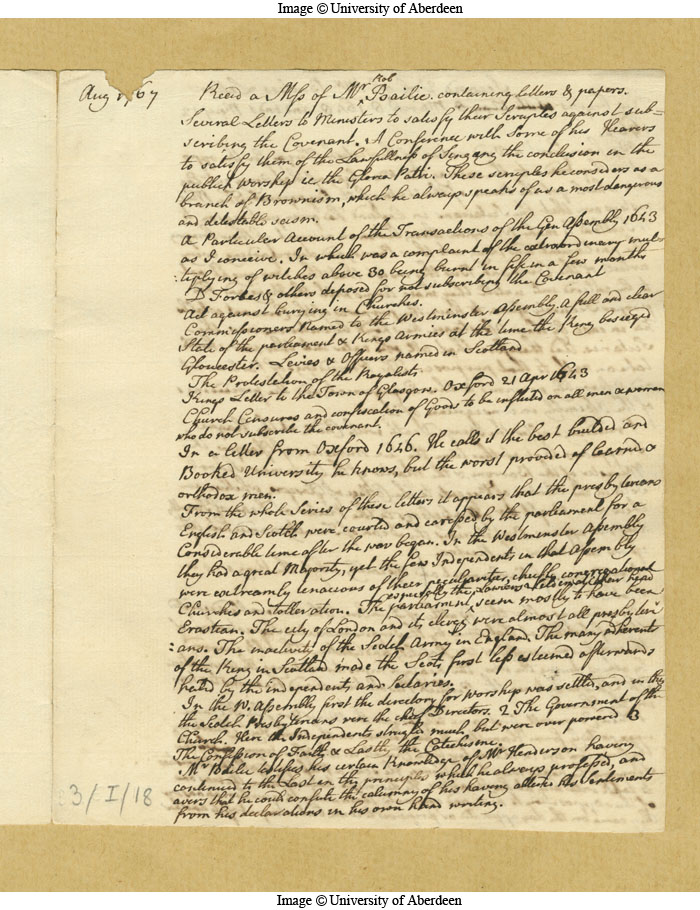 Image © University of Aberdeen
Aug 1767 Recd a Mss of Mr Rob Bailie. containing letters & papers.
Several Letters to Ministers to satisfy their Scruples against sub=
scribing the Covenant. A Conference with Some of his Hearers
to satisfy them of the Lawfullness of Singing the conclusion in the
publick worship ie the Gloria Patri. These scruples he considers as a
branch of Brownism, which he always speaks of as a most dangerous
and detestable scism.
A Particular Account of the Transactions of the Gen Assembly 1643
as I conceive. In which was a complaint of the extraordinary mul
:tiplying of witches above 30 being burnt in fife in a few months
D Forbes & others deposed for not subscribing the Covenant
Act against burying in Churches.
Commissioners Named to the Westminster Assembly, A full and clear
State of the parliament & Kings Armies at the time the King besieged
Gloucester. Levies & Officers named in Scotland
The Protestation of the Royalists
Kings Letter to the Town of Glasgow. Oxford 21 Apr 1643
Church Censures and confiscation of Goods to be inflicted on all men & women
who do not subscribe the covenant.
In a letter from Oxford 1646. He calls it the best builded and
Booked University he knows, but the worst provided of learned &
orthodox men.
From the whole Series of these letters it appears that the presbyterians
English and Scotch were courted and caressed by the parliament for a
Considerable time after the war began. In the Westminster Assembly
they had a great Majority, yet the few Independents in that Assembly
were extreamly tenacious of their peculiarities, chiefly congregational
Churches and tolleration. The parliament, especially the Lawiers & Seldenwas their head seem mostly to have been
Erastian. The city of London and its clergy were almost all presbyteri
:ans. The inactivity of the Scotch Army in England. The many adherents
of the King in Scotland made the Scots, first less esteemed afterwards
hated by the independents and Sectaries.
In the W. Assembly first the directory for Worship was settled, and in this
the Scotch Presbyterians were the chief Directors. 2 The Government of the
Church. Here the Independents strugled much but were over powered 3
The Confession of Faith & Lastly the Catechisme.
Mr Bailie testifies his certain Knowledge of Mr Henderson having
continued to the Last in the principles which he always professed, and
avers that he could confute the calumny of his having altered his Sentiments
from his declarations in his own hand writing.
3/I/18
Image © University of Aberdeen